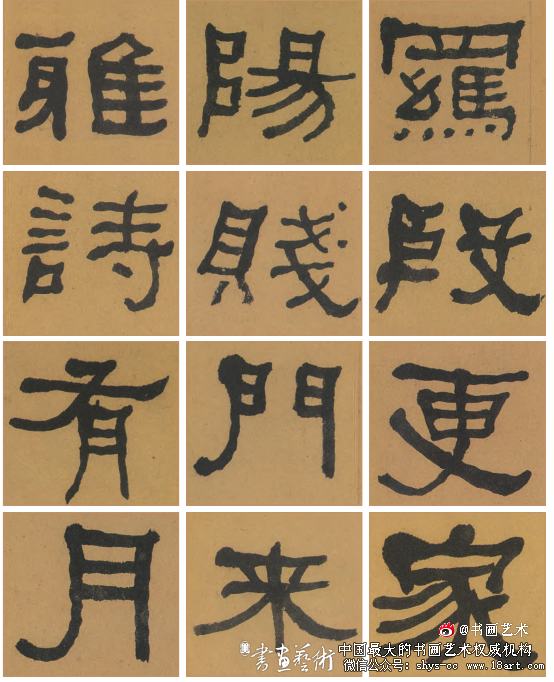 羅段更家
陽賤門来
雅詩有月
@书画艺术
書畫藝術
中国最大的书画艺术权威机构
微信公众号：shys-cc www.18art.com